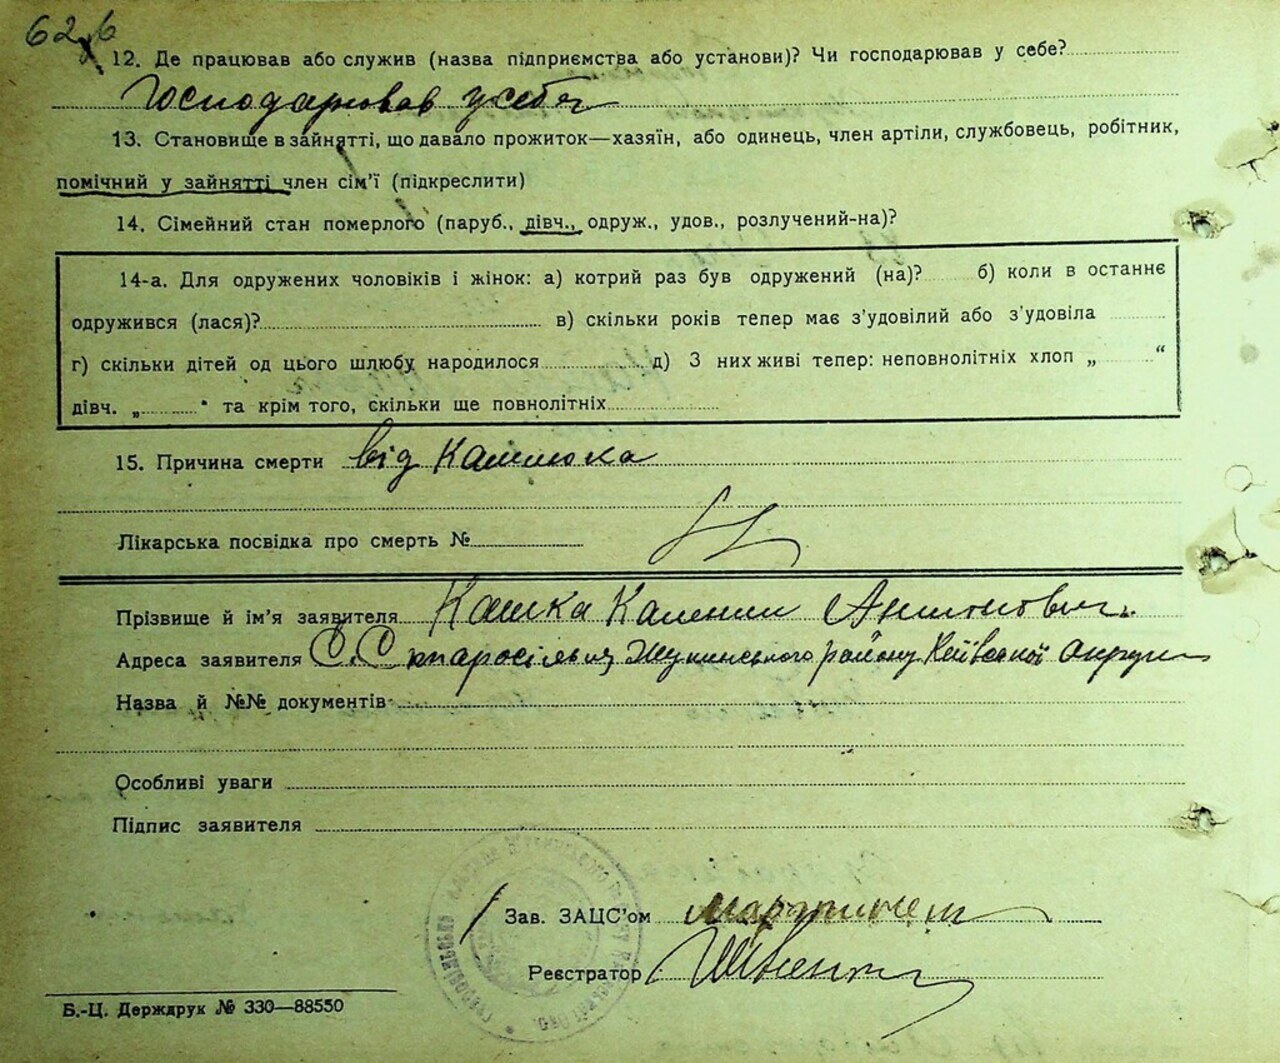 62 б
12. Де працював або служив (назва підприємства або установи)? Чи господарював у себе?
Господарював у себе
13. Становище в зайнятті, що давало прожиток—хазяїн, або одинець, член артіли, службовець, робітник,
помічний у зайнятті член сім'ї (підкреслити)
14. Сімейний стан померлого (паруб., дівч., одруж., удов., розлучений-на)?
14-а. Для одружених чоловіків і жінок: а) котрий раз був одружений (на)? б) коли в останнє
одружився (лася)? в) скільки років тепер має з'удовілий або з'удовіла
г) скільки дітей од цього шлюбу народилося д) З них живі тепер: неповнолітніх хлоп „ “
дівч. „ “ та крім того, скільки ще повнолітніх
15. Причина смерти від кашлюка
Лікарська посвідка про смерть №
Прізвище й ім'я заявителя Кашка Каленик Антонович
Адреса заявителя С. Старосілля Жукинського району Київської округи
Назва й №№ документів
Особливі уваги
Підпис заявителя
Зав. ЗАЦС'ом
Реєстратор
Б.-Ц. Держдрук № 330—88550